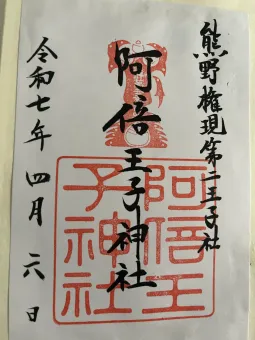 熊野権現第二王子社
阿倍王子神社
令和七年四月六日
阿倍王
子神社